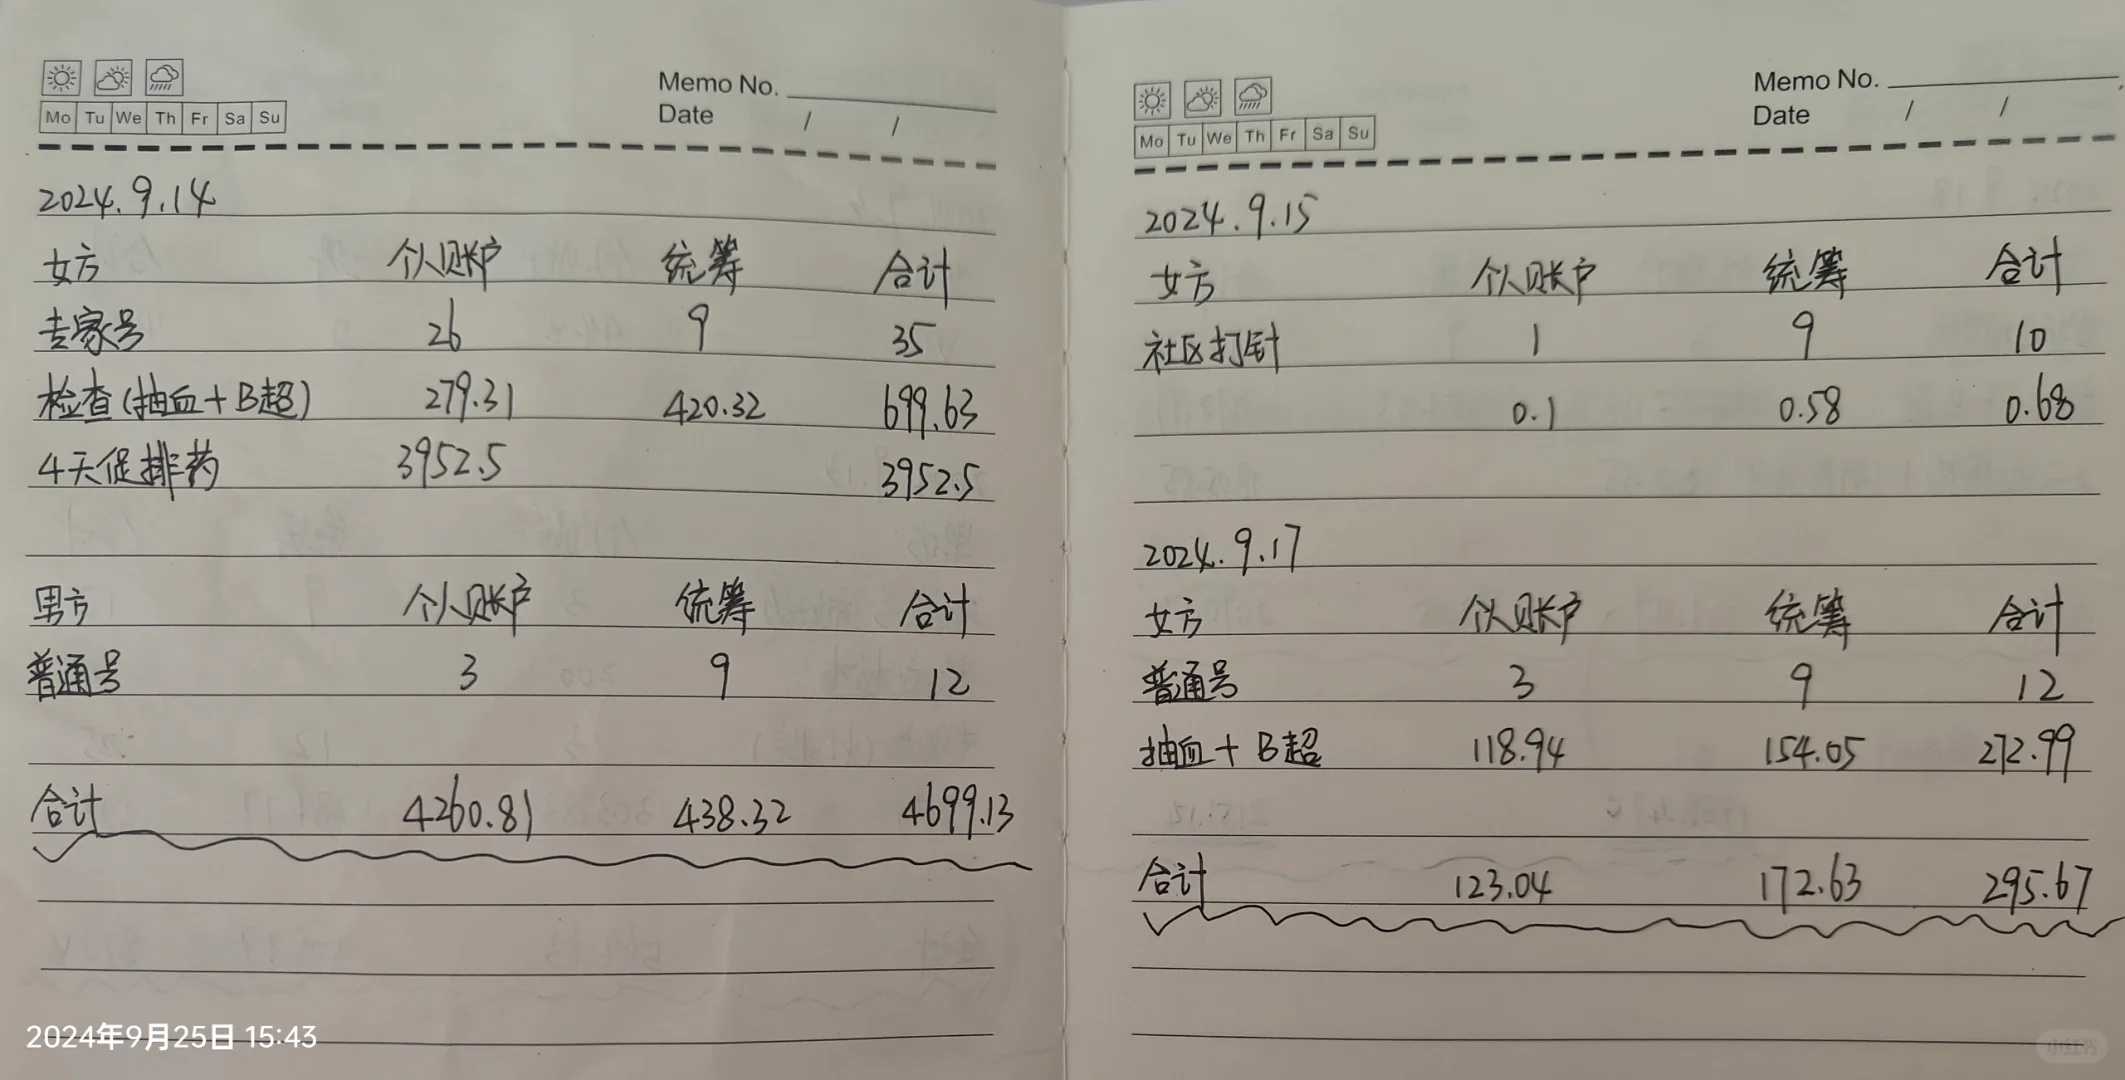 Memo No.
Mo Tu We Th Fr Sa Su
Date / /
2024.9.14
女方 个人账户 统筹 合计
专家号 26 9 35
检查(抽血+B超) 279.31 420.32 699.63
4天促排药 3952.5 3952.5
男方 个人账户 统筹 合计
普通号 3 9 12
合计 4260.81 438.32 4699.13
2024年9月25日 15:43
Memo No.
Mo Tu We Th Fr Sa Su
Date / /
2024.9.15
女方 个人账户 统筹 合计
社区打针 1 9 10
0.1 0.58 0.68
2024.9.17
女方 个人账户 统筹 合计
普通号 3 9 12
抽血+B超 118.94 154.05 272.99
合计 123.04 172.63 295.67
小红书